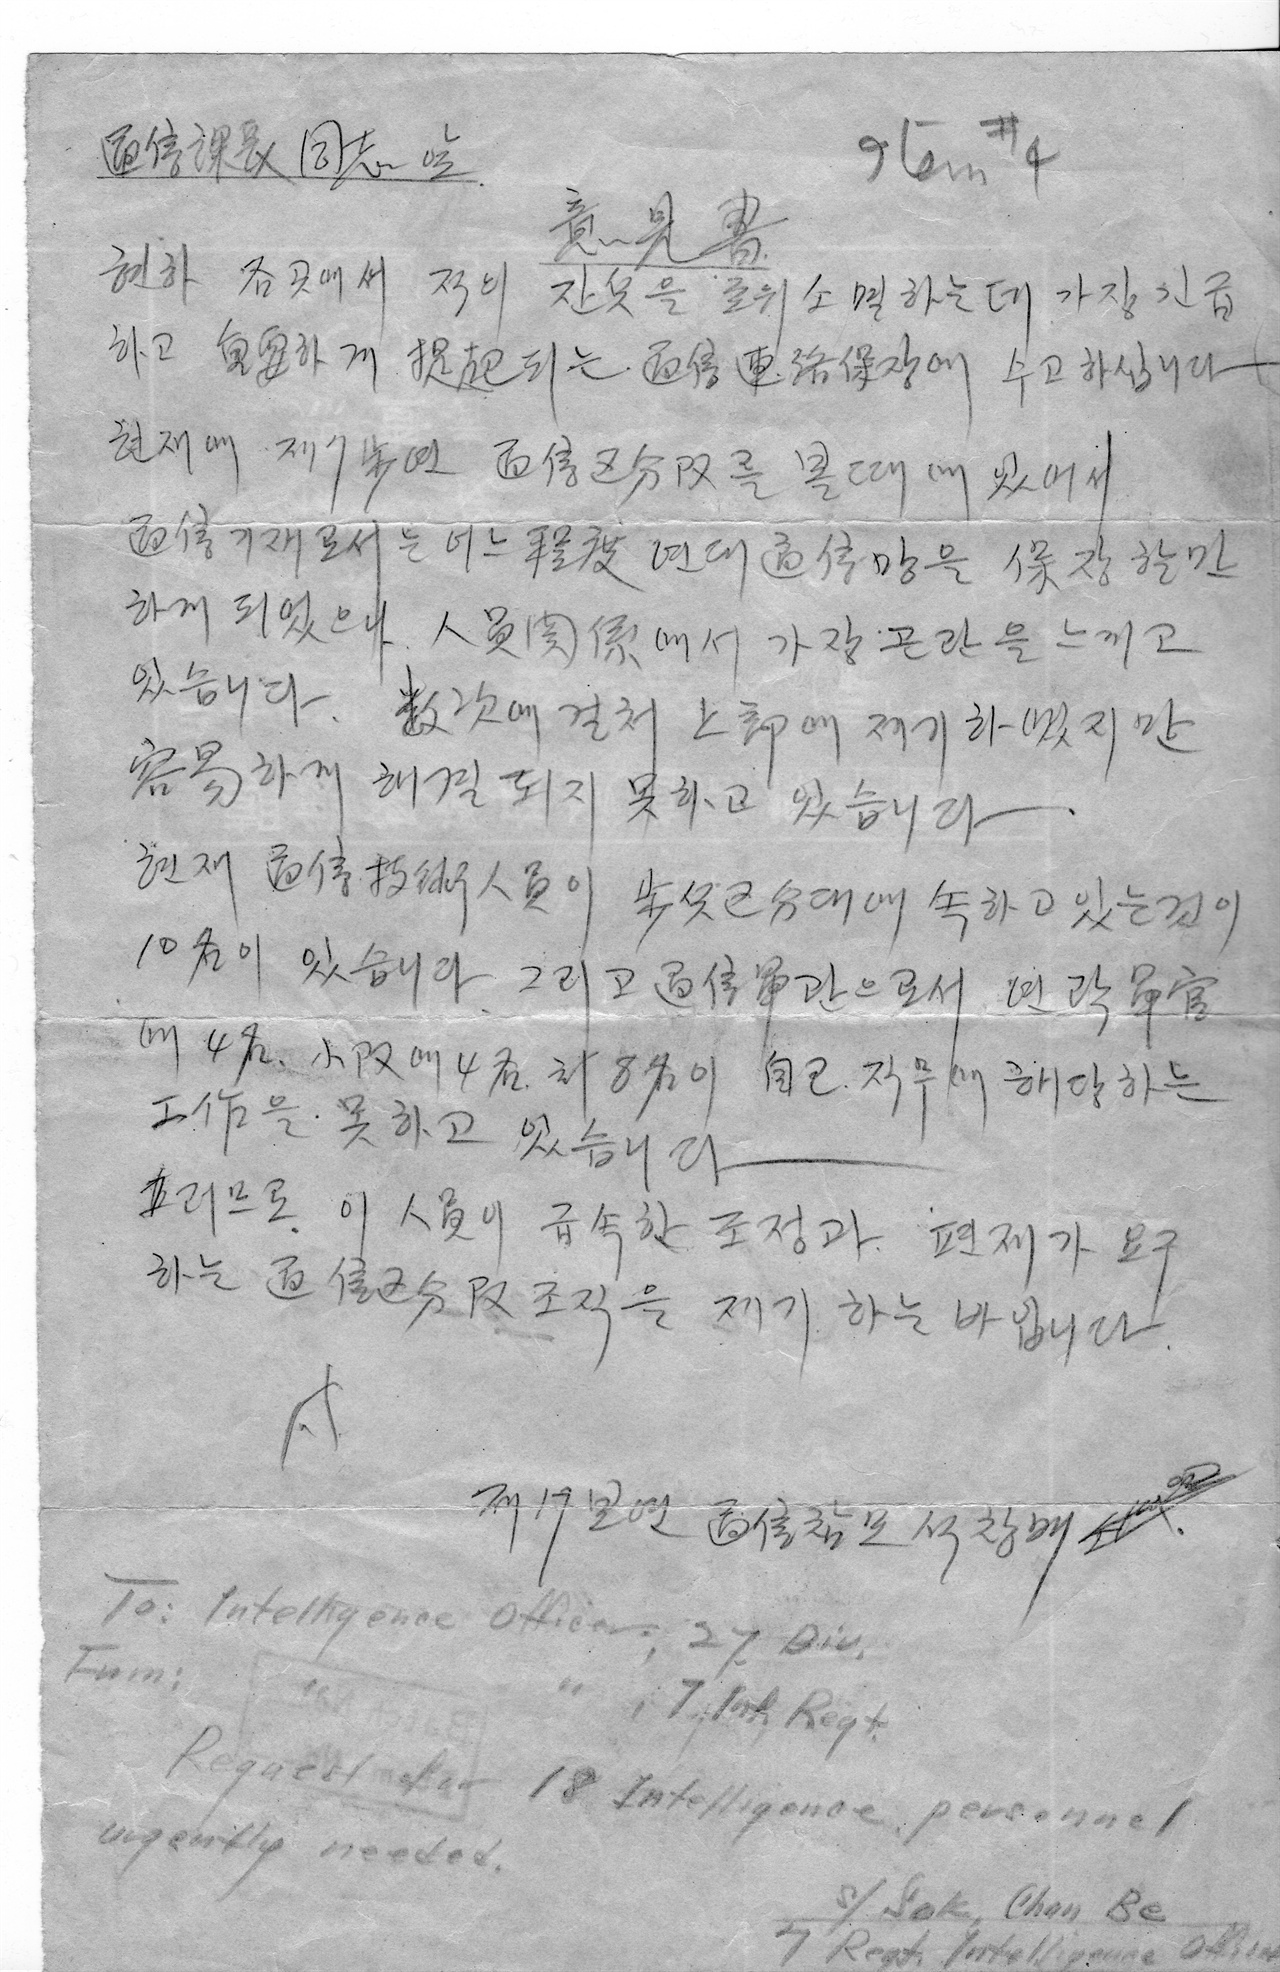 通信課長 同志 앞
Item #4
意見書
현하 各곳에서 적의 잔욧을 포위 소멸하는데 가장 긴급
하고 重要하게 提起되는 通信連絡保장에 수고하십니다
현재에 제7步연 通信区分队를 볼때에 있어서
通信기재로서는 어느 程度 연대 通信망을 保장할만
하게 되였으나 人員関係에서 가장 곤란을 느끼고
있습니다. 数次에 걸처 上部에 제기하였지만
容易하게 해결되지 못하고 있습니다
현재 通信技術人員이 步兵区分대에 속하고있는것이
10名이 있습니다 그리고 通信軍관으로서 연락軍官
에 4名. 小队에 4名 計 8名이 自己 직무에 해당하는
工作을 못하고 있습니다
그러므로 이 人員이 급속한 조정과 편제가 요구
하는 通信区分队 조직을 제기하는 바입니다.
通信참모 석창배
To: Intelligence Officer, 27 Div.
From: " , 7 Inf. Regt.
Request for 18 Intelligence personnel
urgently needed.
s/ Sok, Chan Be
7 Regt. Intelligence Officer